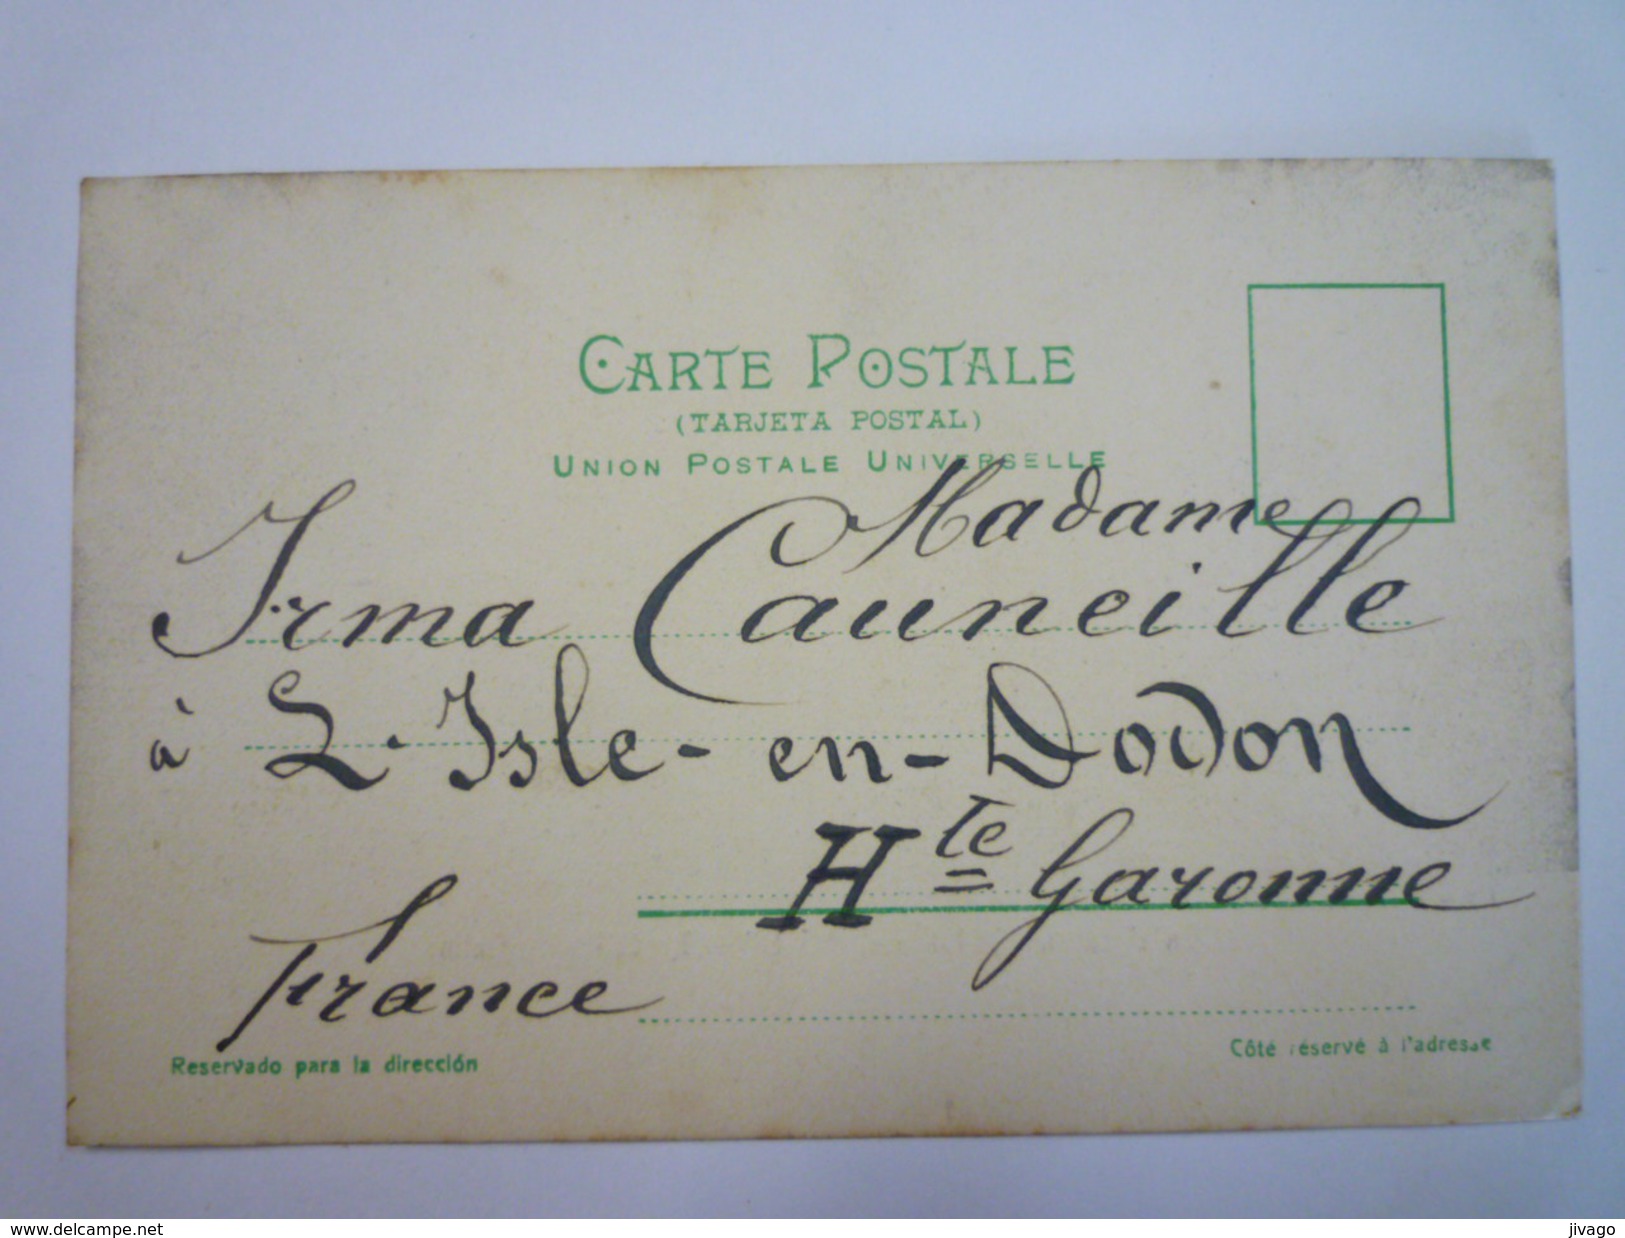 CARTE POSTALE
(TARJETA POSTAL)
UNION POSTALE UNIVERSELLE
Madame
Irma Cauneille
à L'Isle-en-Dodon
Hte Garonne
France
Reservado para la dirección
Côté réservé à l'adresse
www.delcampe.net
jivago